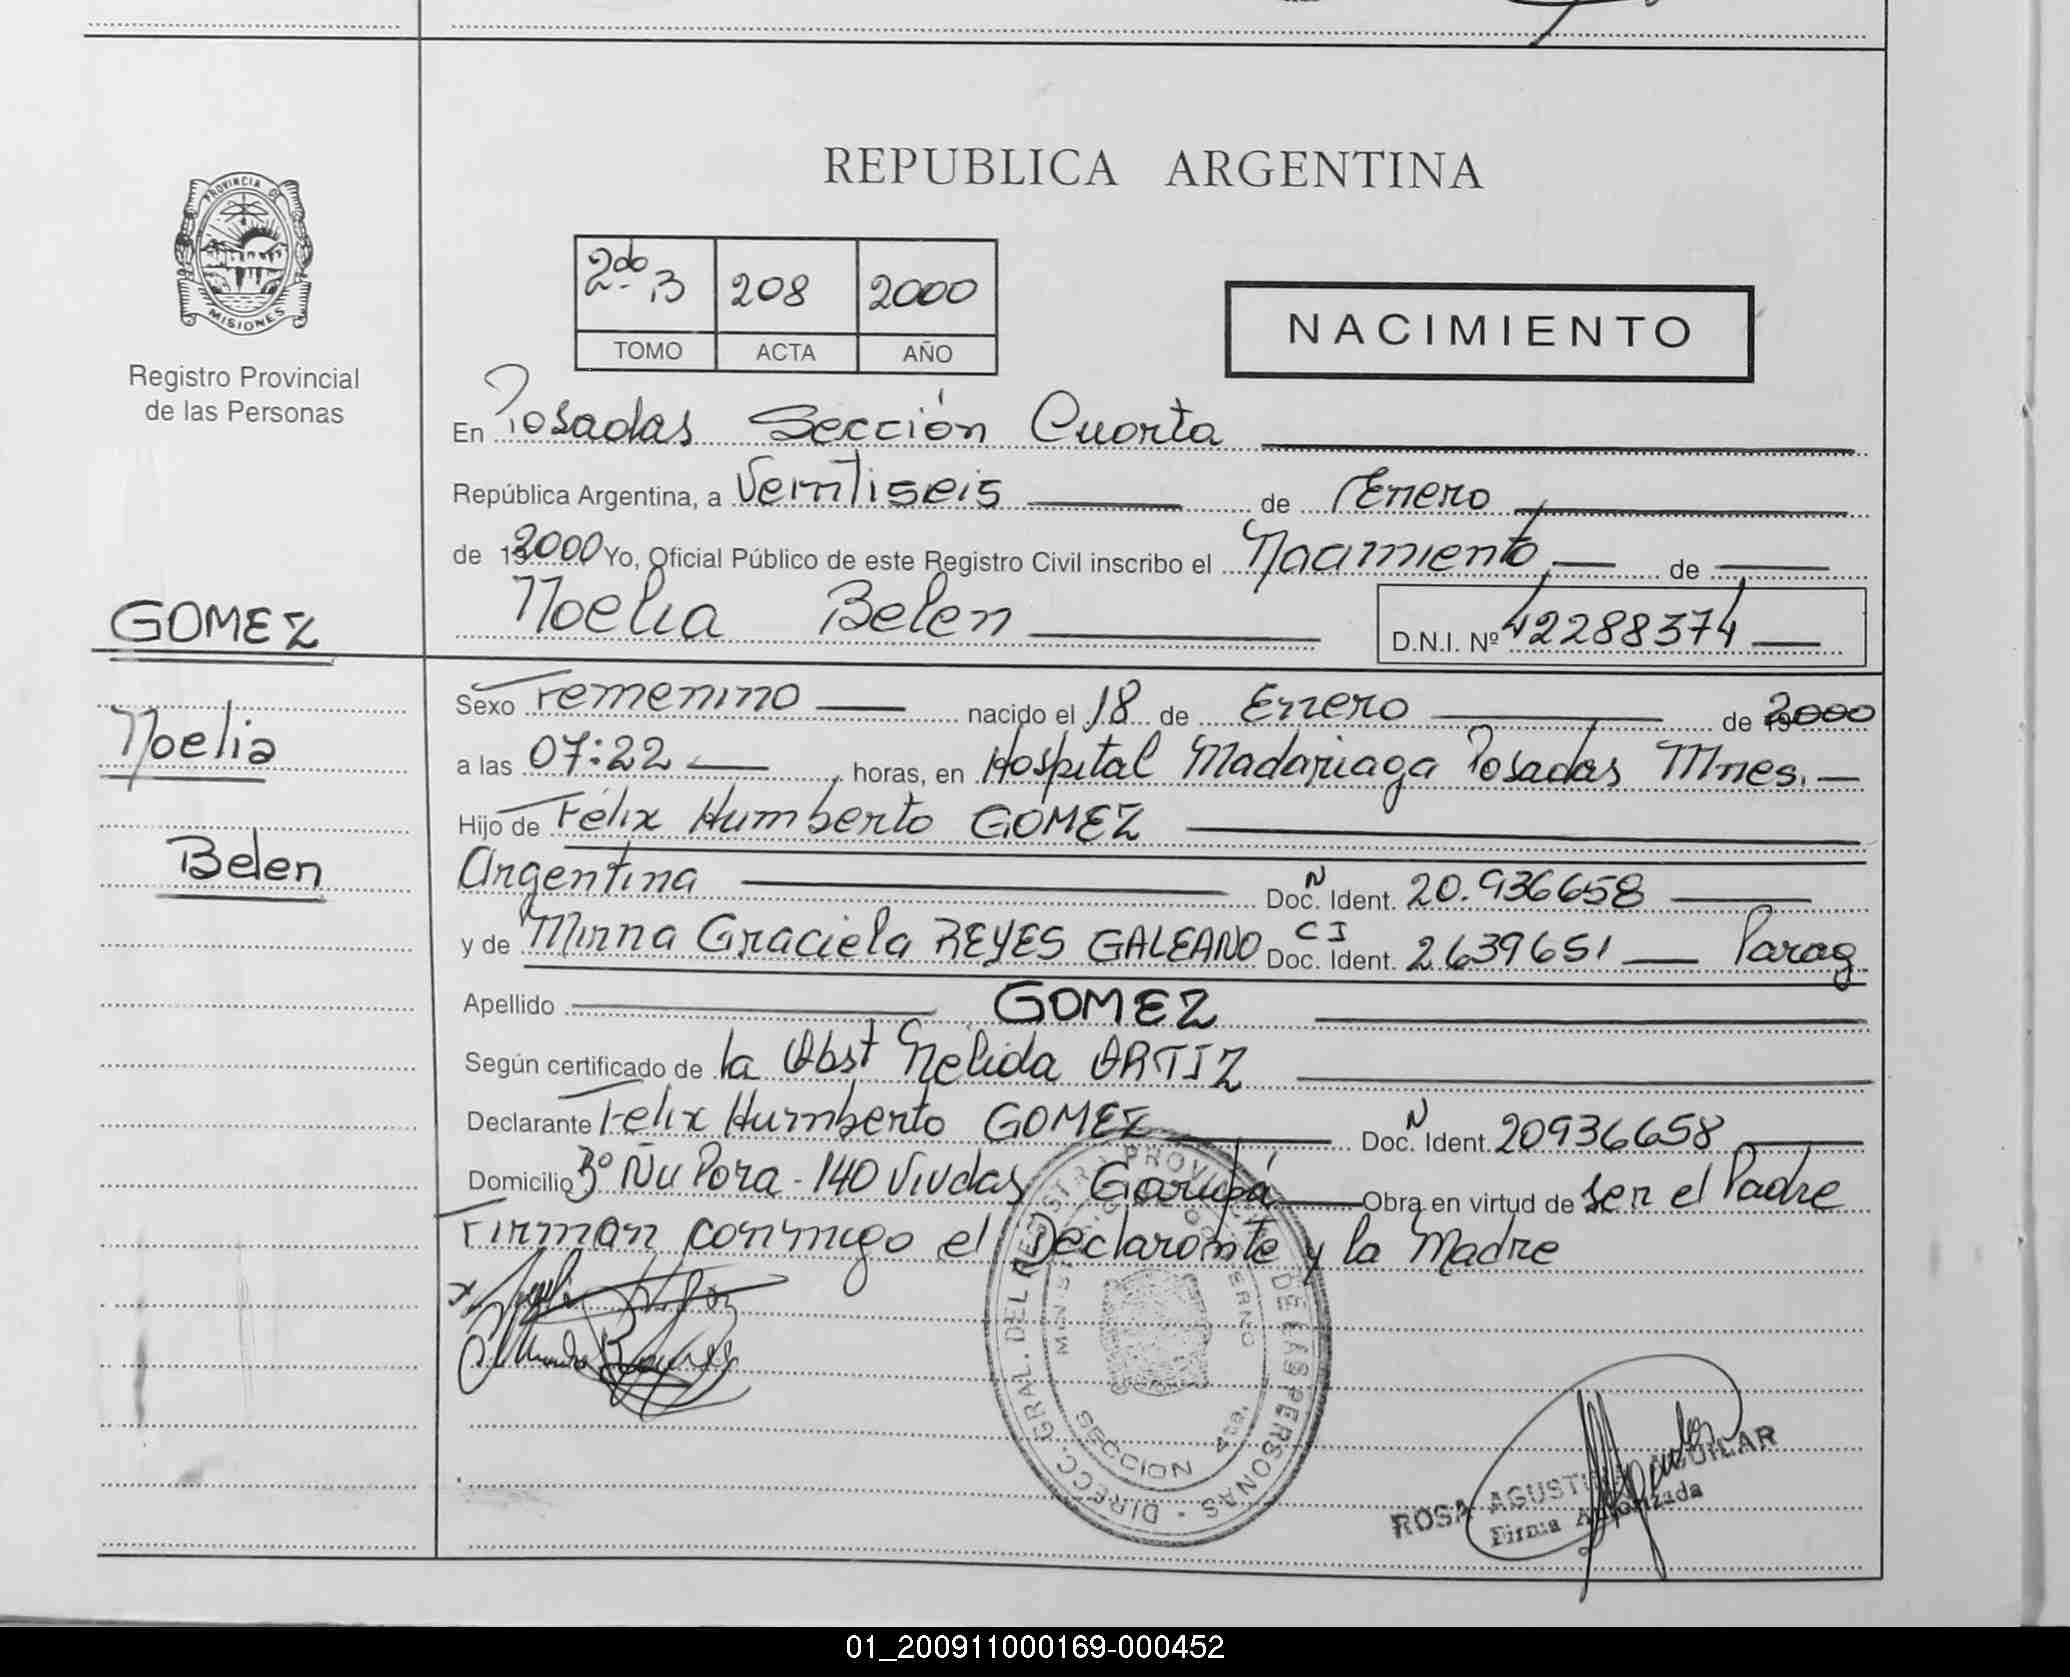 REPUBLICA ARGENTINA
PROVINCIA DE
MISIONES
Registro Provincial
de las Personas
2do B 208 2000
TOMO ACTA AÑO
NACIMIENTO
En Posadas Sección Cuarta
República Argentina, a Veintiseis de Enero
de 192000 Yo, Oficial Público de este Registro Civil inscribo el Nacimiento de
Noelia Belen D.N.I. Nº 42288374
GOMEZ
Noelia
Belen
Sexo Femenino nacido el 18 de Enero de 2000
a las 07:22 horas, en Hospital Madariaga Posadas Mnes.
Hijo de Félix Humberto GOMEZ
Argentina Doc. N Ident. 20.936658
y de Mirna Graciela REYES GALEANO Doc. CI Ident. 2639651 Parag
Apellido GOMEZ
Según certificado de la Obst Nelida ORTIZ
Declarante Felix Humberto GOMEZ Doc. N Ident. 20936658
Domicilio Bº Ñu Pora - 140 Vivdas Garupá Obra en virtud de ser el Padre
Firman conmigo el Declarante y la Madre
DIRECC. GRAL. DEL REGISTRO PROVINCIAL DE LAS PERSONAS
MINISTERIO DE GOBIERNO
SECCION 4ta.
ROSA AGUSTINA AGUILAR
Firma Autorizada
01_200911000169-000452